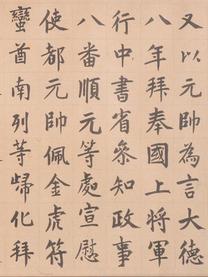 又以元帥為言大德
八年拜奉國上將軍
行中書省參知政事
八番順元等處宣慰
使都元帥佩金虎符
蠻酋南列等歸化拜